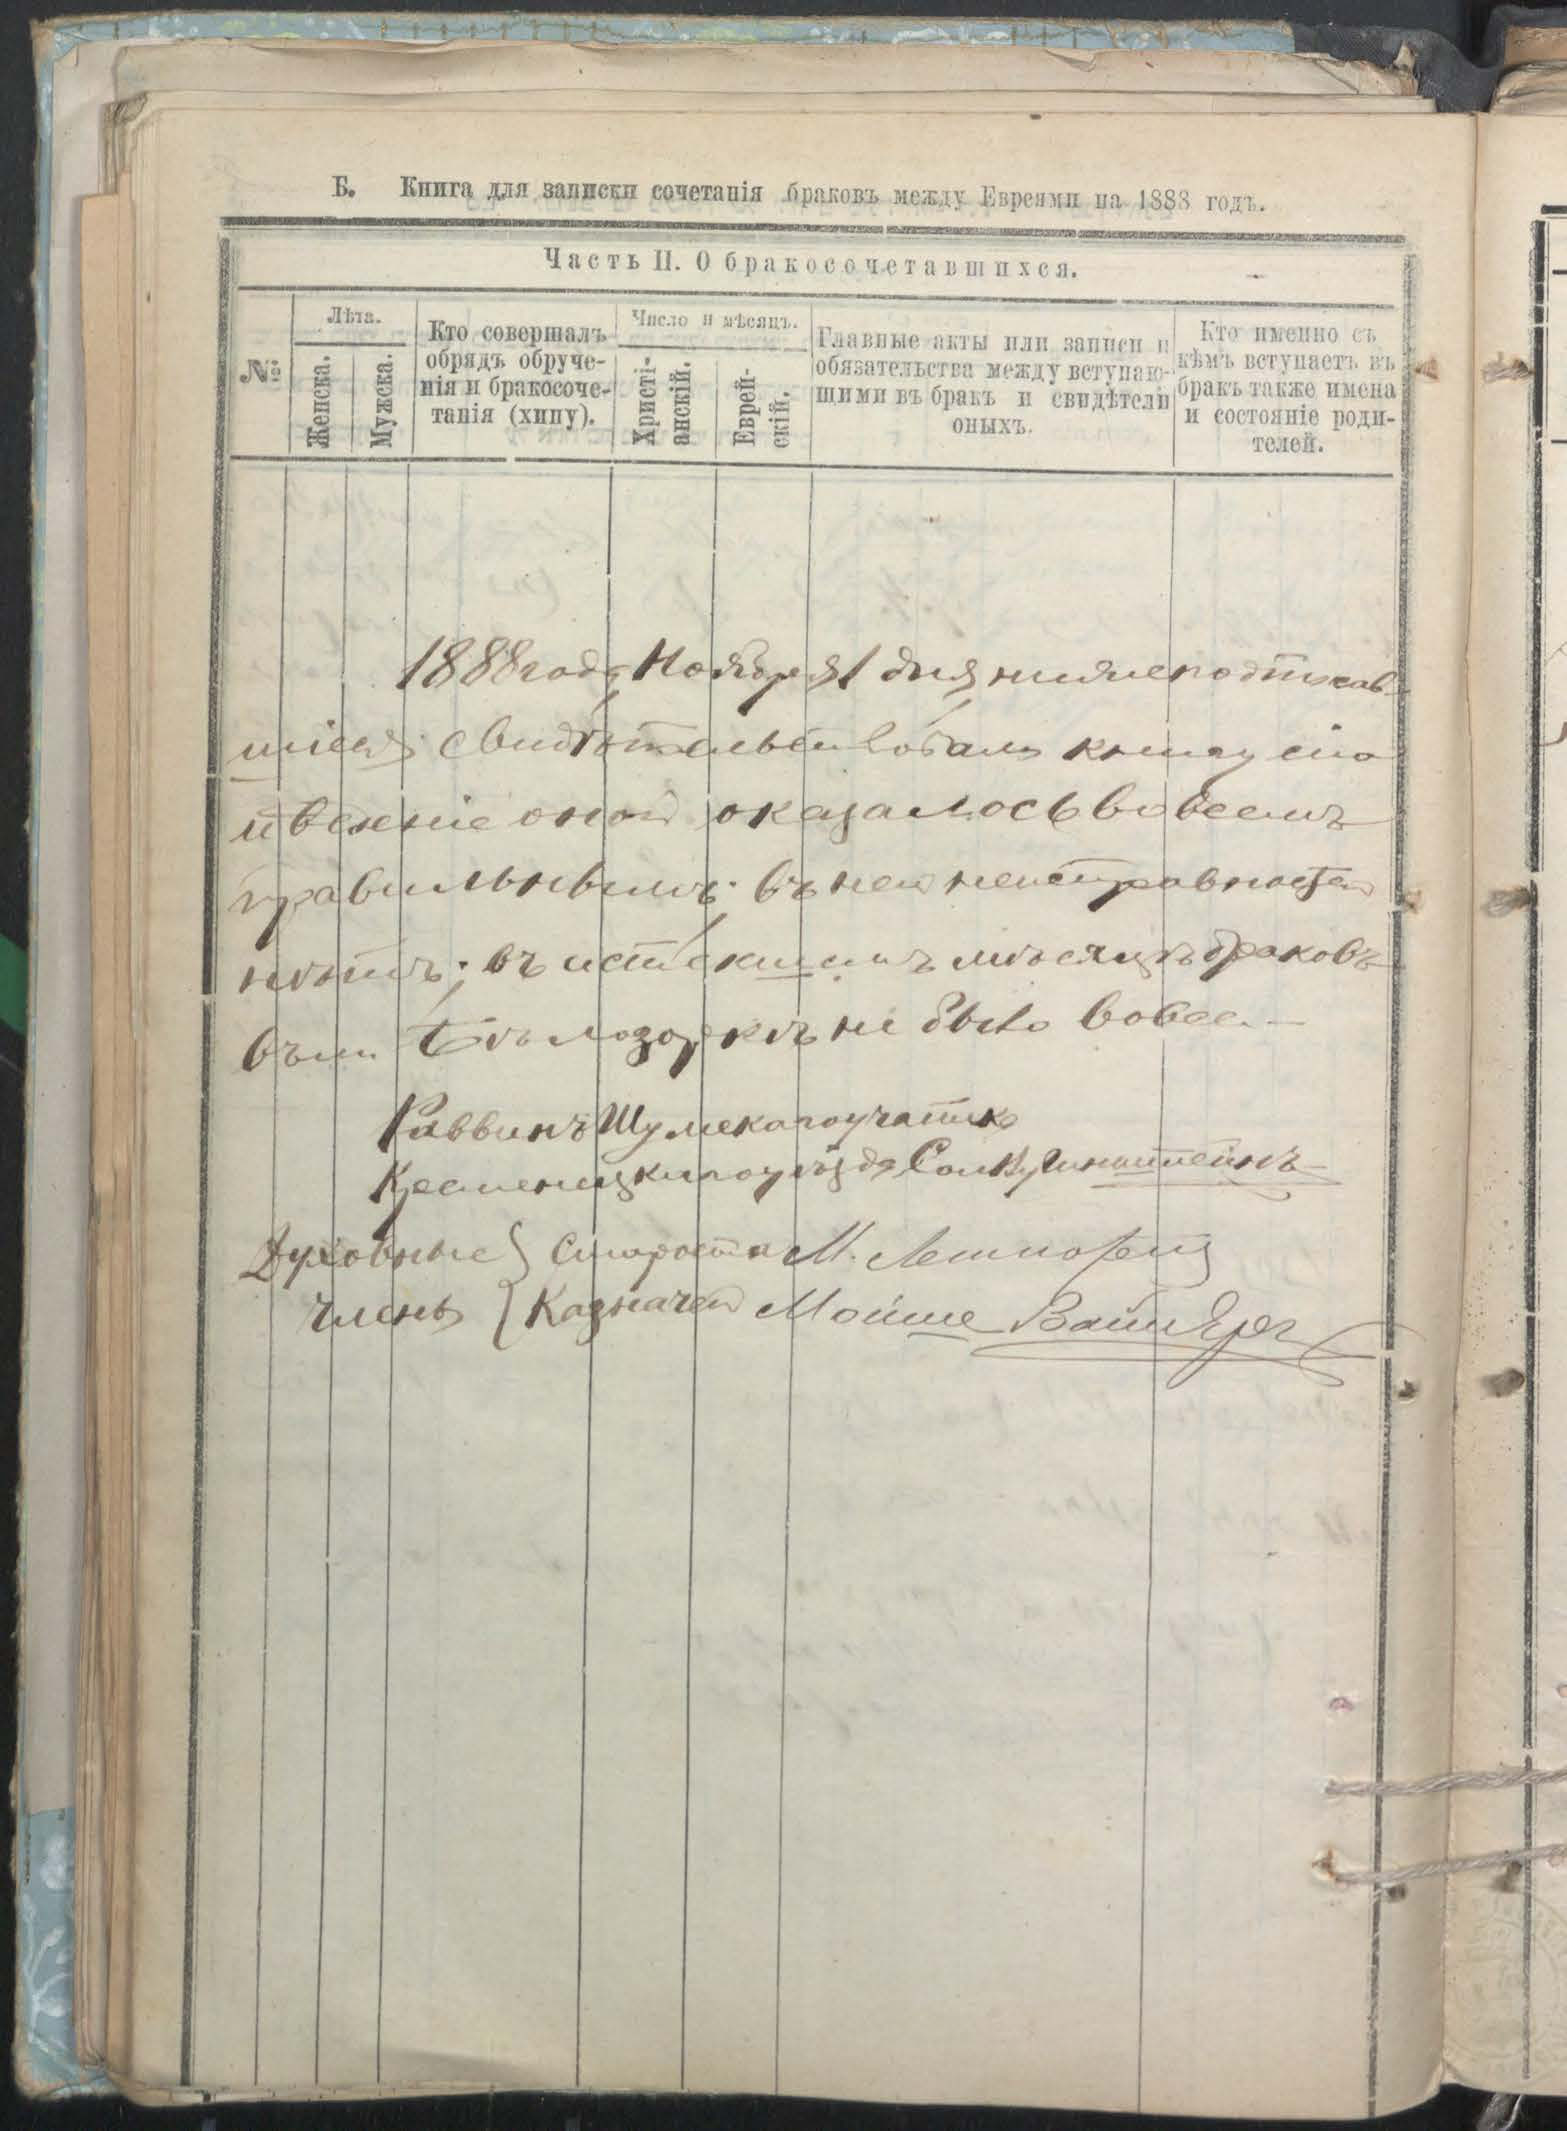 Б. Книга для записки сочетанія браковъ между Евреями на 1888 годъ.
Часть II. О бракосочетавшихся.
№
Лѣта.
Женска.
Мужска.
Кто совершалъ
обрядъ обруче-
нія и бракосоче-
танія (хипу).
Число и мѣсяцъ.
Христі-
анскій.
Еврей-
скій.
Главные акты или записи и
обязательства между вступаю-
щими въ бракъ и свидѣтели
оныхъ.
Кто именно съ
кѣмъ вступаетъ въ
бракъ также имена
и состояніе роди-
телей.
1888 года Ноября 1 дня нижеподписав-
шіеся свидѣтельствовали книгу сію
и веденіе оной оказалось во всемъ
правильнымъ: въ ней неисправностей
нѣтъ; въ истекшемъ мѣсяцѣ браковъ
въ м Бѣлозоркѣ не было вовсе. —
Раввинъ Шумскаго участка
Кременецкаго уѣзда
Духовные } Староста М.
члены { Казначей Мойше